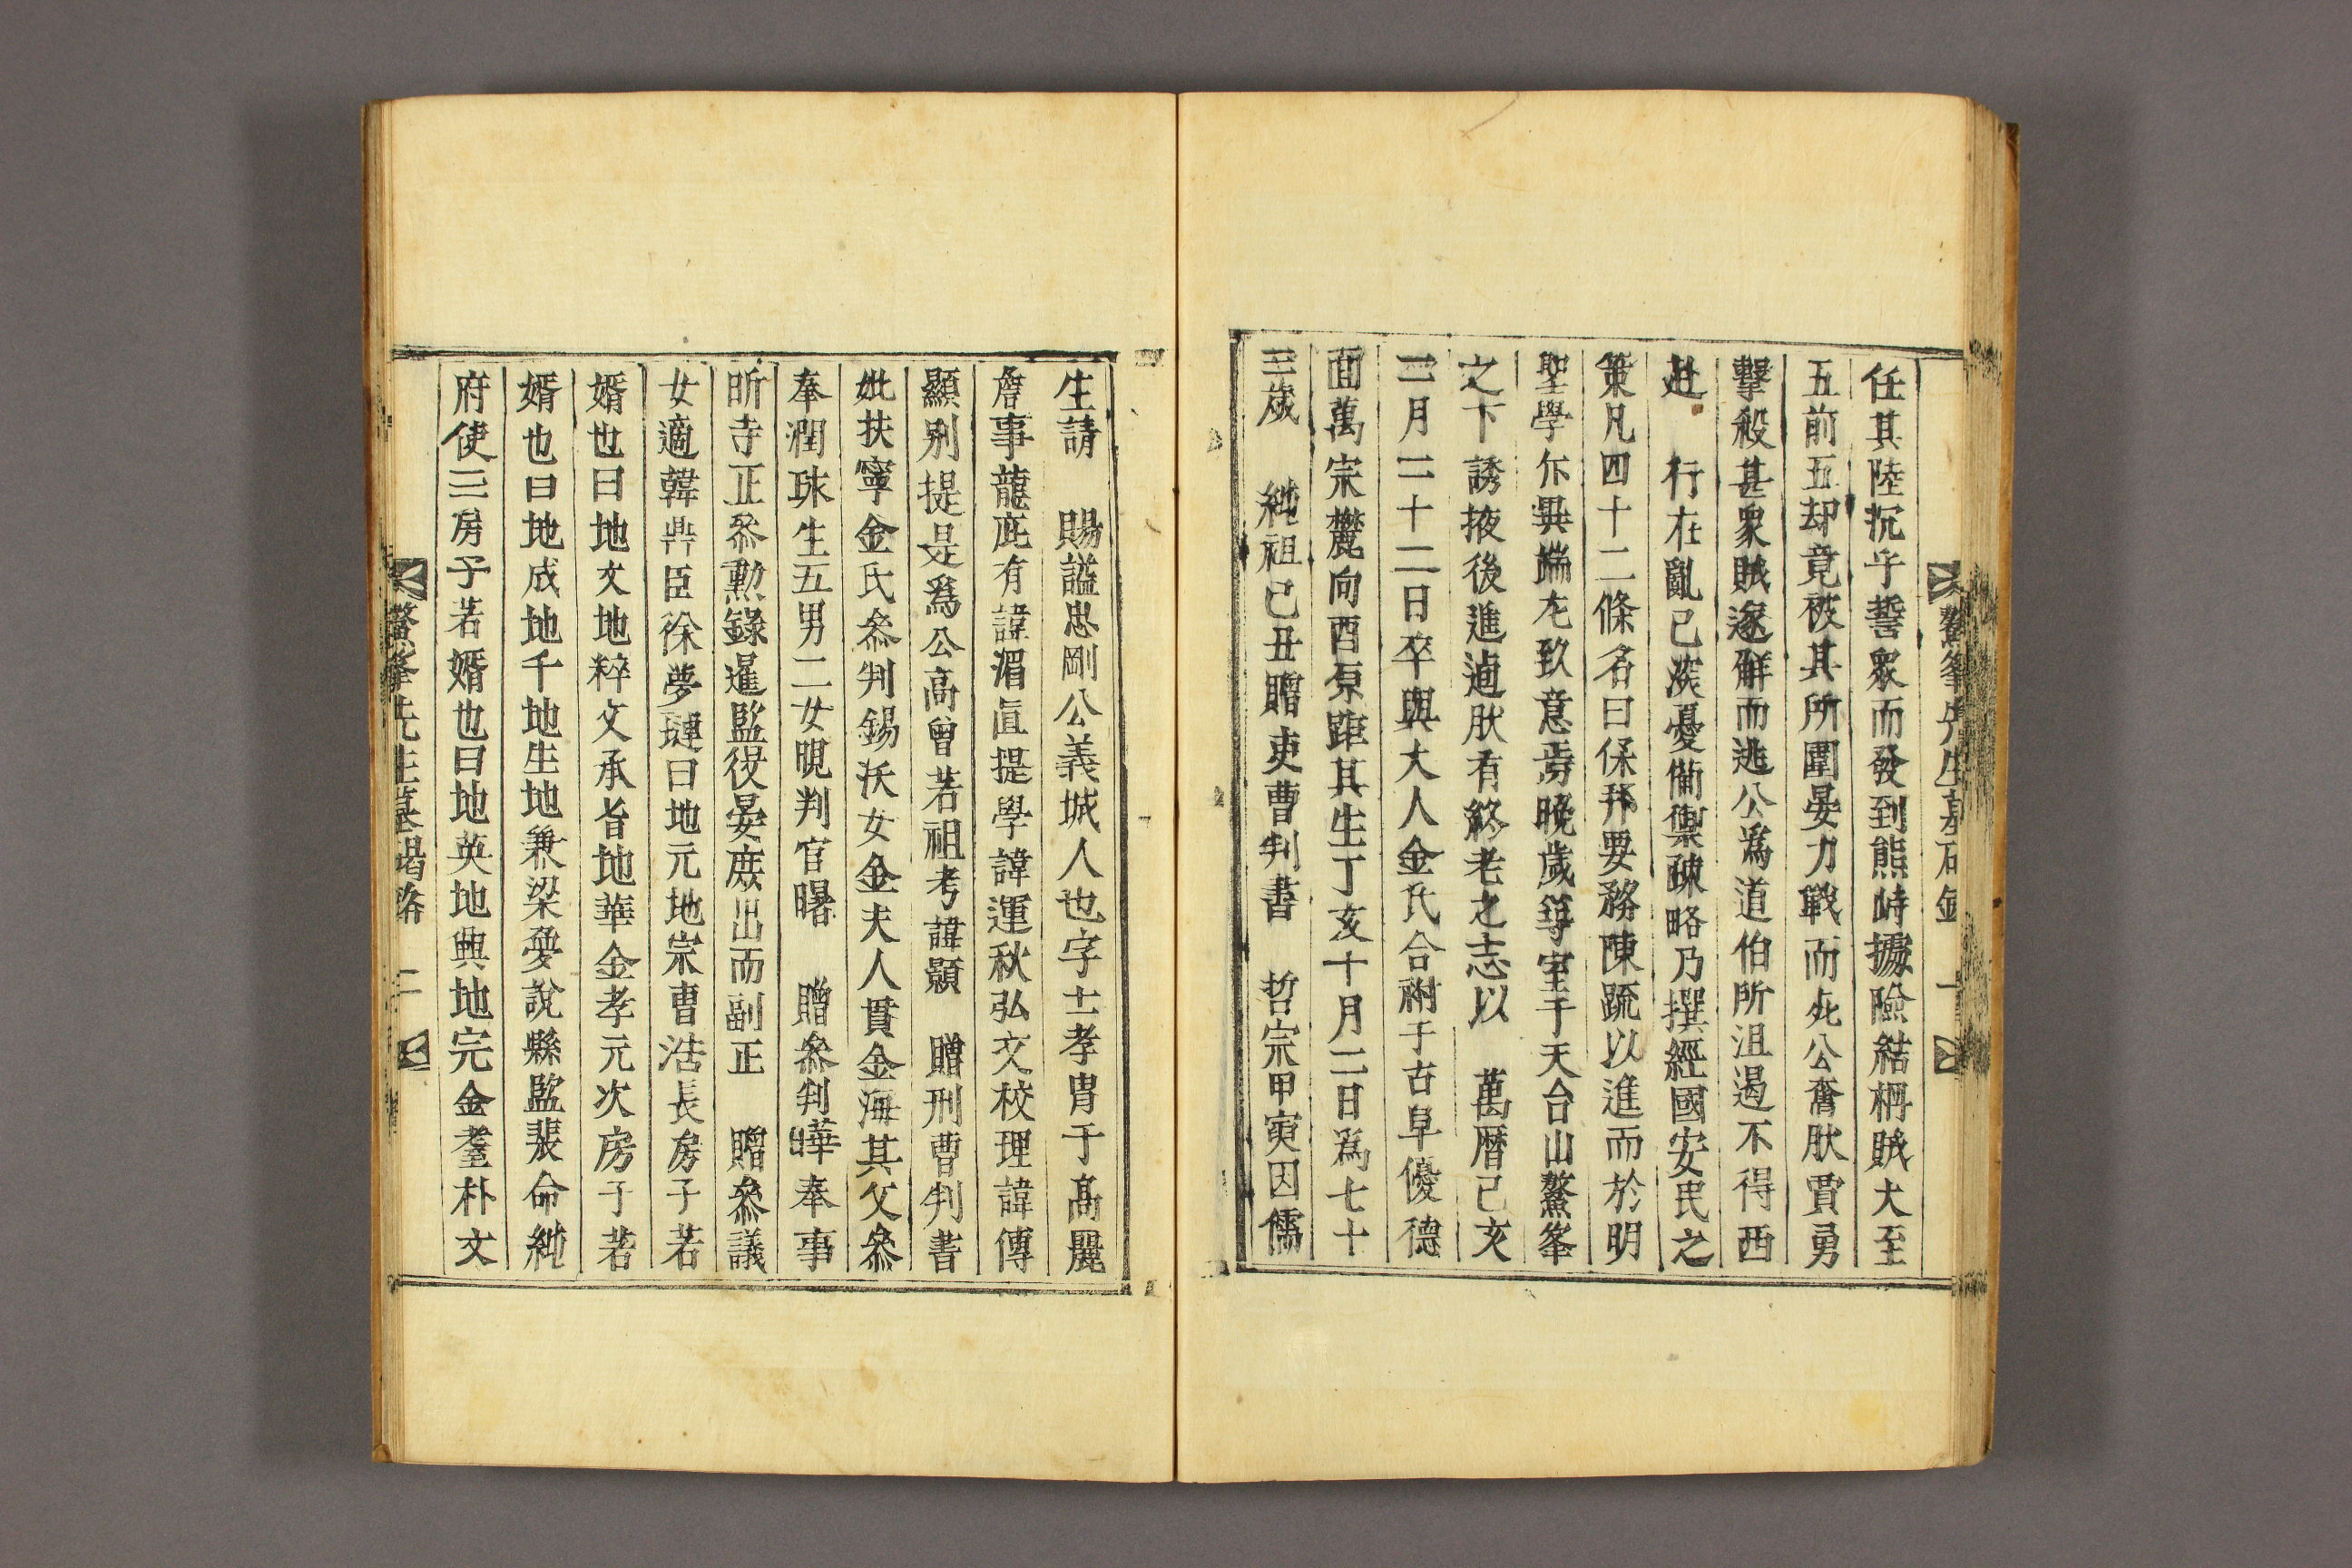 鰲峯先生墓碣銘 一
任其陸沉乎誓衆而發到熊峙據險結柵賊大至
五前五却竟被其所圍晏力戰而死公奮肰賈勇
擊殺甚衆賊遂解而逃公爲道伯所沮遏不得西
赴 行在亂已深憂備禦疎略乃撰經國安民之
策凡四十二條名曰保邦要務陳疏以進而於明
聖學斥異端尤致意焉晚歲築室于天台山鰲峯
之下誘掖後進逌肰有終老之志以 萬曆己亥
二月二十二日卒與夫人金氏合祔于古阜優德
面萬宗麓向酉原距其生丁亥十月二日爲七十
三歲 純祖己丑贈吏曹判書 哲宗甲寅因儒
生請 賜謚忠剛公義城人也字士孝冑于高麗
詹事龍庇有諱湄直提學諱運秋弘文校理諱傳
顯別提是爲公高曾若祖考諱顥 贈刑曹判書
妣扶寧金氏叅判錫沃女金夫人貫金海其父叅
奉潤珠生五男二女晛判官曙 贈叅判曄奉事
昕寺正叅勳錄暹監役晏庶出而副正 贈叅議
女適韓鼎臣徐夢璉曰地元地宗曹浩長房子若
婿也曰地文地粹文承旨地華金孝元次房子若
婿也曰地成地千地生地兼梁愛說縣監裴命純
府使三房子若婿也曰地英地興地完金耋朴文
鰲峯先生墓碣銘 二